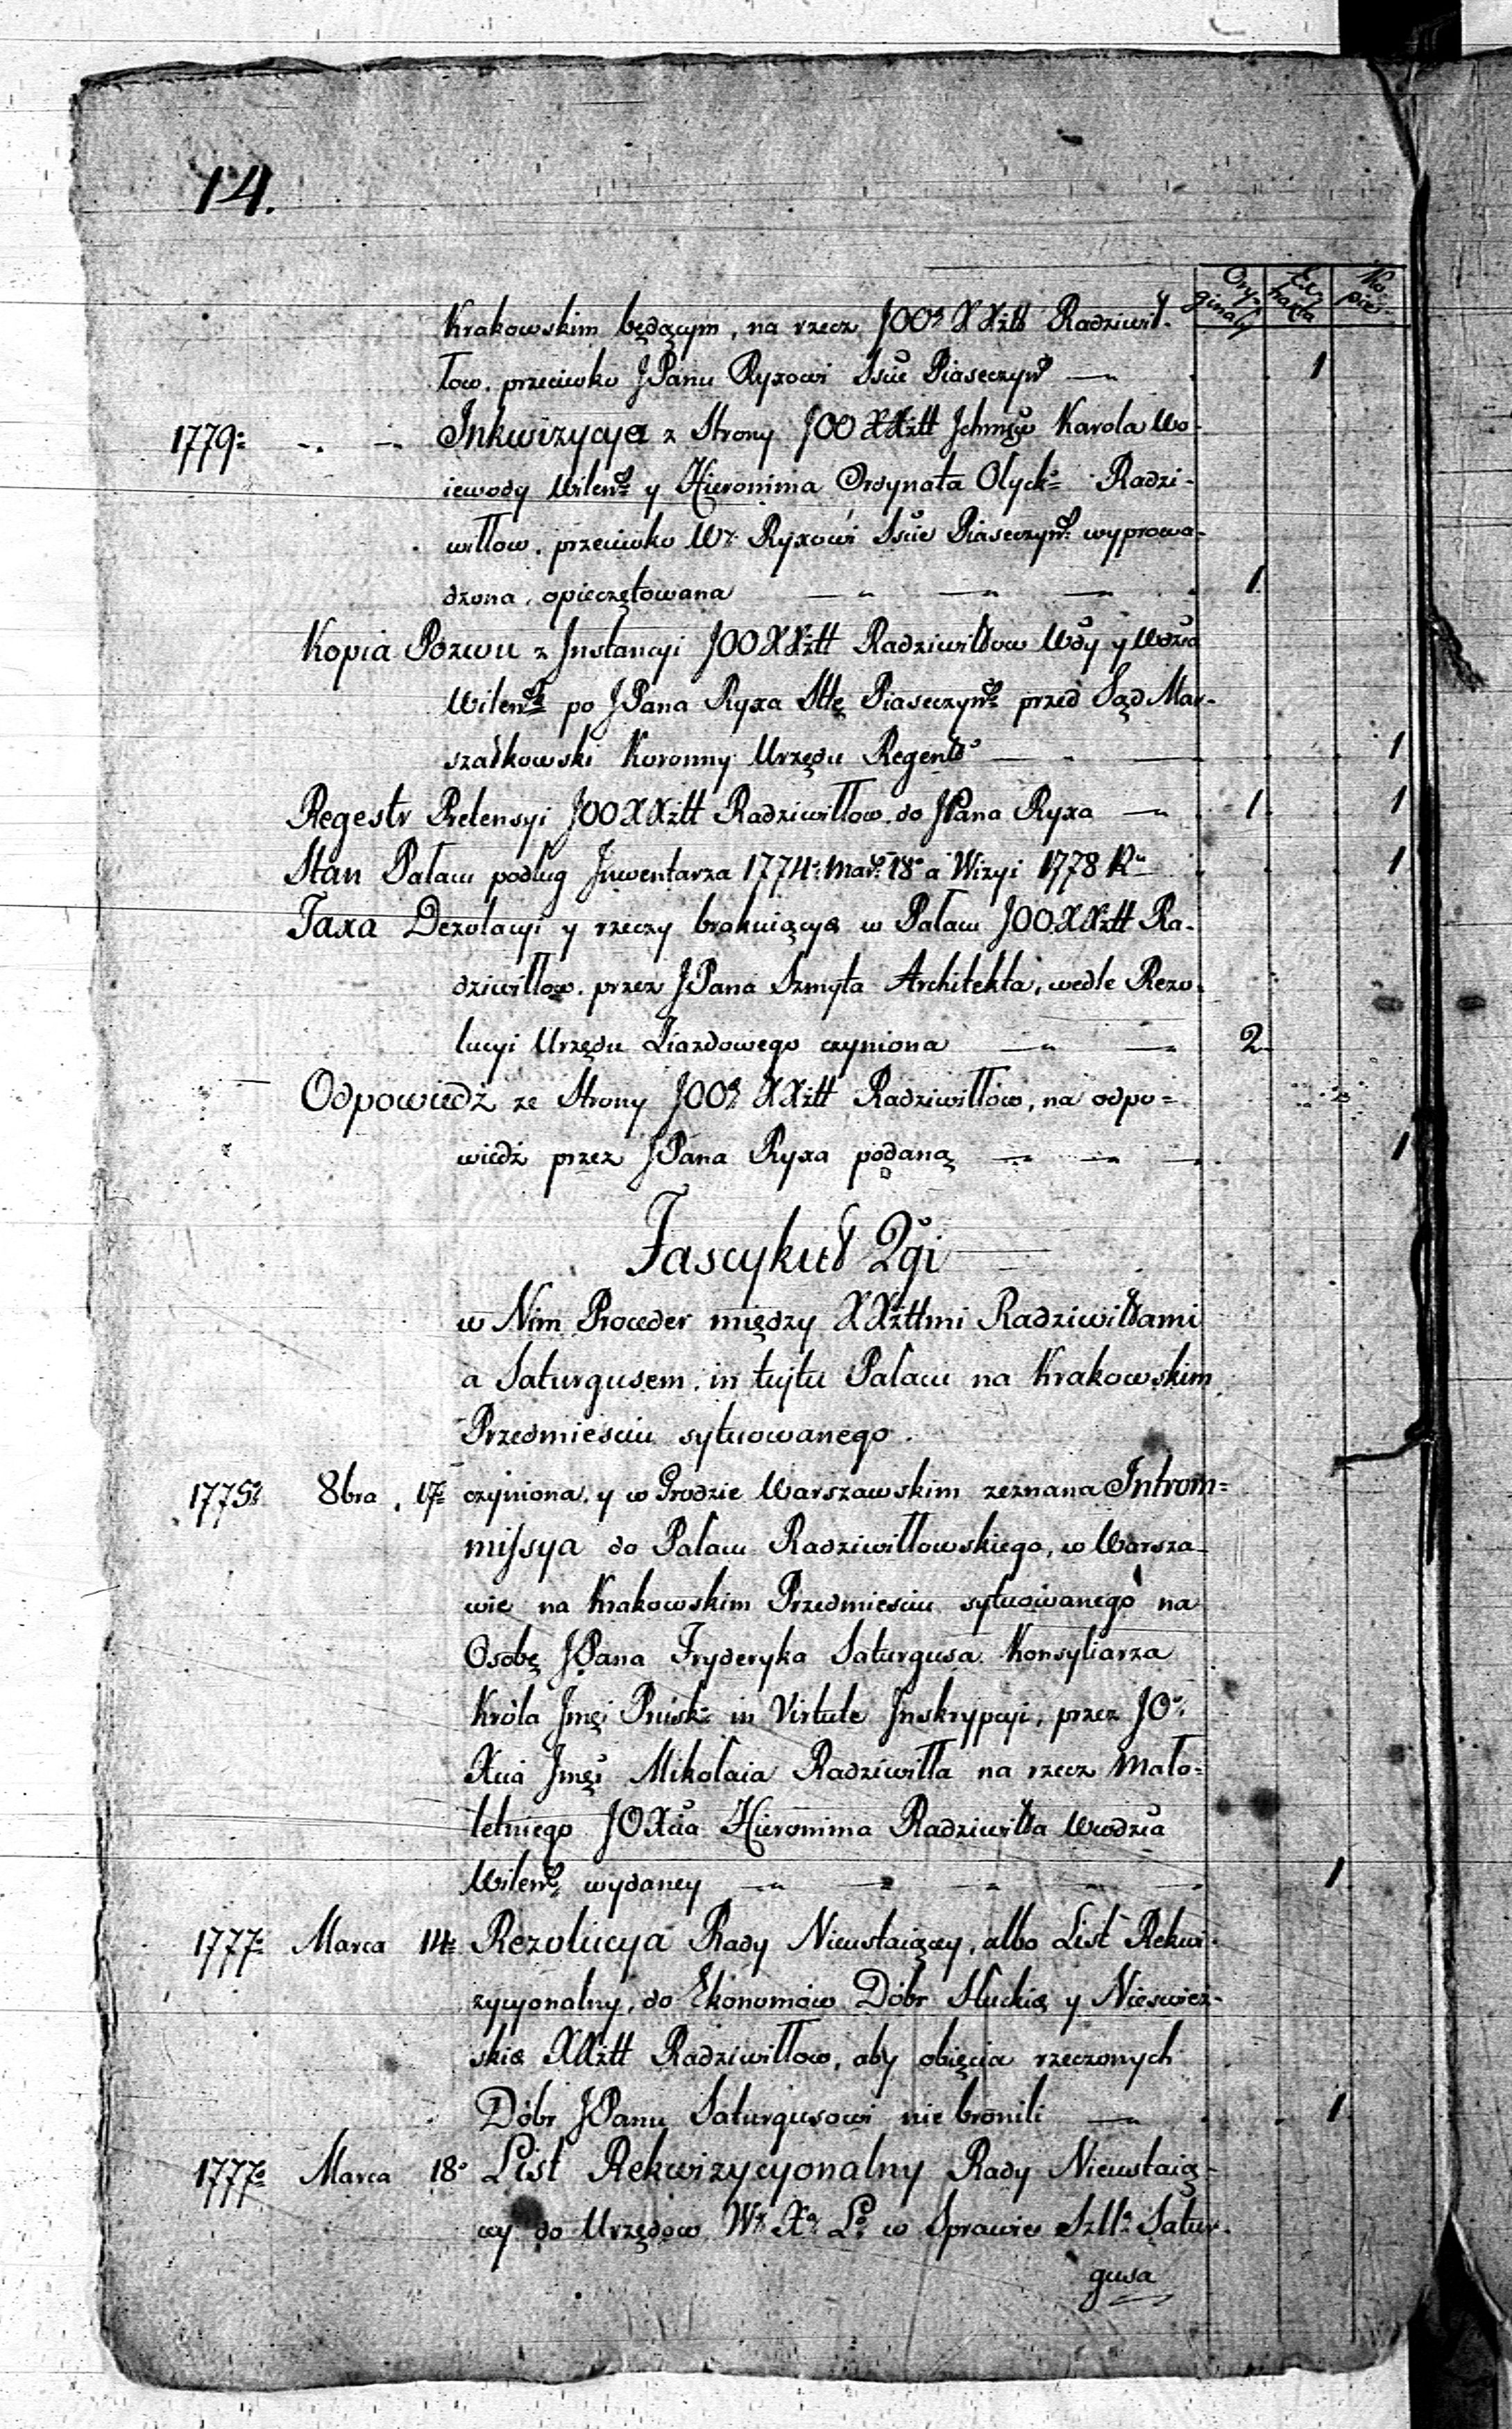 14.
Ory- Ex- Ko-
ginały trakta pie
Krakowskim będącym, na rzecz JOO: XXżtt Radziwił-
łow. przeciwko JPanu Ryxowi Sście Piaseczyń 1
1779: Inkwizycya z Strony JOO XXżtt Jchmściw Karola Wo-
iewody Wilen: y Hieronima Ordynata Olyck: Radzi-
wiłłow. przeciwko W: Ryxowi Sście Piaseczyn: wyprowa-
dzona, opieczętowana 1.
Kopia Pozwu z Jnstancyi JOOXXżtt Radziwiłłow Wdy y Wdzca
Wilen: po JPana Ryxa Sttę Piaseczyn: przed Sąd Mar-
szałkowski Koronny Urzędu 1
Regestr Pretensyi JOOXXżtt Radziwiłłow. do JPana Ryxa 1. 1
Stan Pałacu podług Jnwentarza 1774: mar: 18° a Wizyi 1778 R: 1
Taxa Dezolacyi y rzeczy brakuiącyc w Pałacu JOO.XXżtt Ra-
dziwiłłow. przez JPana Szmyta Architekta, wedle Rezo-
lucyi Urzędu Ziazdowego czyniona 2.
Odpowiedź ze Strony JOO: XXżtt Radziwiłłów, na odpo=
wiedź przez JPana Ryxa podaną 1
Fascykuł 2gi
w Nim Proceder między XXżttmi Radziwiłłami
a Saturgusem. in tujtu Pałacu na Krakowskim
Przedmiesciu sytuowanego.
1775: 8bra. 17: czyniona. y w Grodzie Warszawskim zeznana Introm=
missya do Pałacu Radziwiłłowskiego, w Warsza-
wie na Krakowskim Przedmiesciu sytuowanego na
Osobę JPana Fryderyka Saturgusa Konsyliarza
Króla Jmći Prusk: in Virtute Jnskrypcyi, przez JO:
Xcia Jmći Mikołaia Radziwiłła na rzecz Mało=
letniego JOXcia Hieronima Radziwiłła Wwodzca
Wilen: wydaney 1.
1777: Marca 14: Rezolucya Rady Nieustaiącey, albo List Rekwi-
zycyonalny, do Ekonomów Dóbr Słuckic y Nieswiez-
skic XXżtt Radziwiłłow, aby obięcia rzeczonych
Dóbr JPanu Saturgusowi nie bronili 1.
1777: Marca 18° List Rekwizycyonalny Rady Nieustaią-
cey do Urzędow W: X: L: w Sprawie Szll: Satur-
gusa